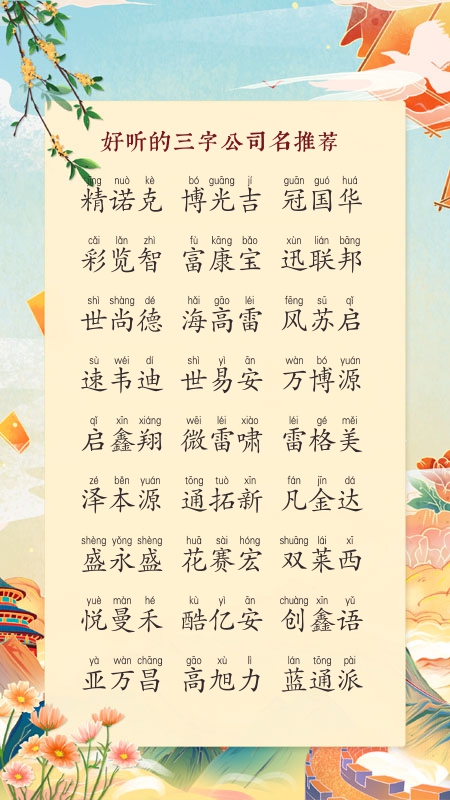 好听的三字公司名推荐
jīng nuò kè bó guāng jí guān guó huá
精诺克 博光吉 冠国华
cǎi lǎn zhì fù kāng bǎo xùn lián bāng
彩览智 富康宝 迅联邦
shì shàng dé hǎi gāo léi fēng sū qǐ
世尚德 海高雷 风苏启
sù wéi dí shì yì ān wàn bó yuán
速韦迪 世易安 万博源
qǐ xīn xiáng wēi léi xiào léi gé měi
启鑫翔 微雷啸 雷格美
zé běn yuán tōng tuò xīn fán jīn dá
泽本源 通拓新 凡金达
shèng yǒng shèng huā sài hóng shuāng lái xī
盛永盛 花赛宏 双莱西
yuè màn hé kù yì ān chuàng xīn yǔ
悦曼禾 酷亿安 创鑫语
yà wàn chāng gāo xù lì lán tōng pài
亚万昌 高旭力 蓝通派